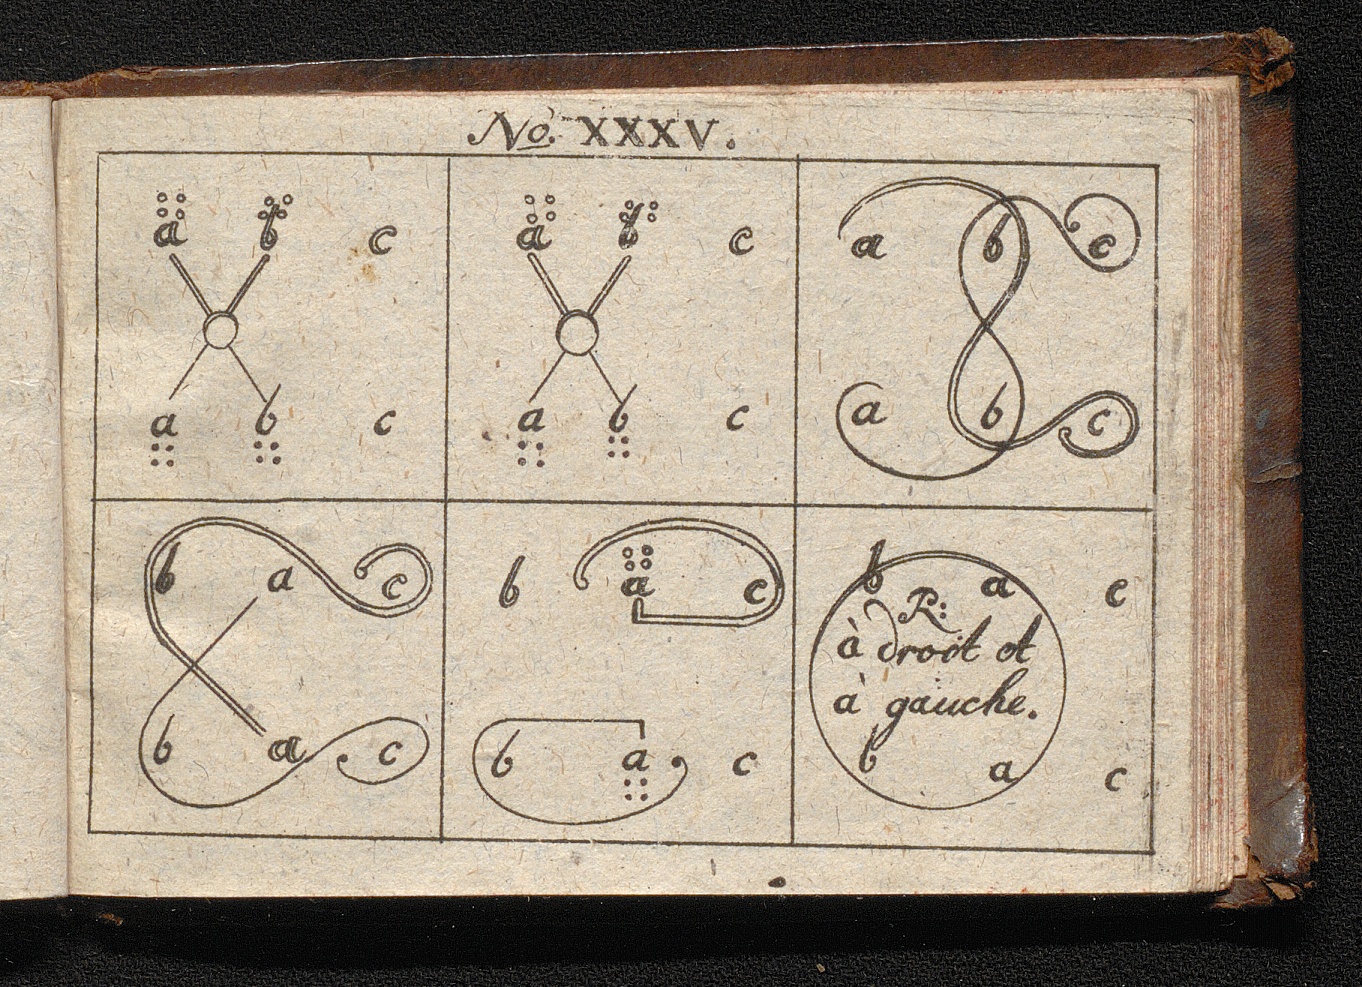 No. XXXV.
a b c
a b c
a b c
a b c
a b c
a b c
b a c
b a c
b a c
b a c
b a c
R:
à droit et
à gauche.
b a c